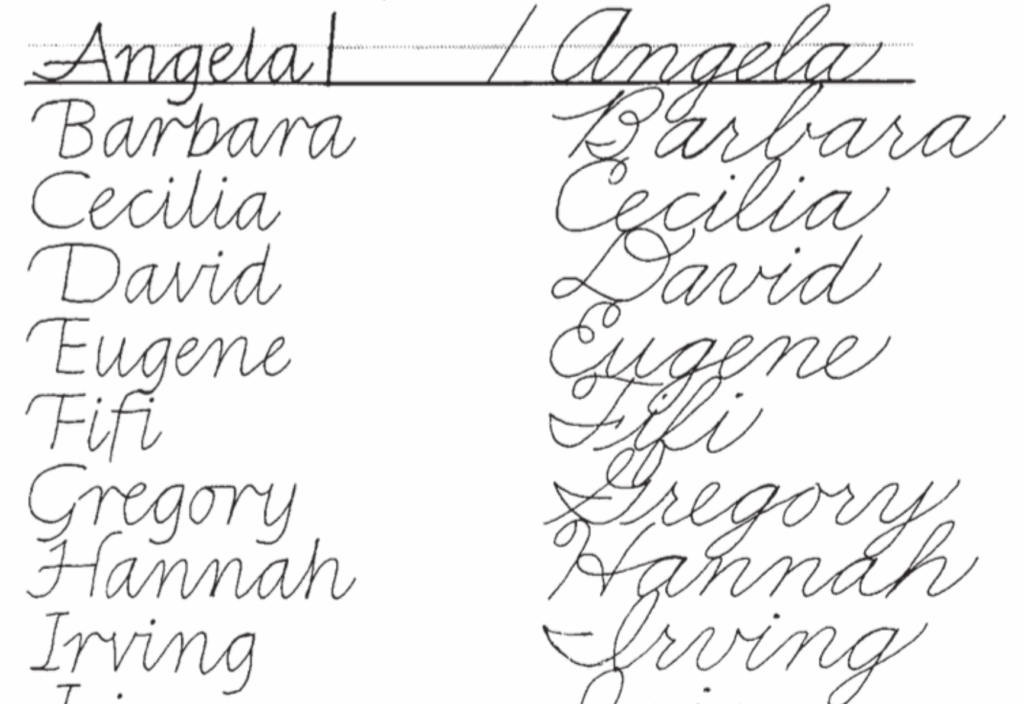 Angela / Angela
Barbara Barbara
Cecilia Cecilia
David David
Eugene Eugene
Fifi Fifi
Gregory Gregory
Hannah Hannah
Irving Irving